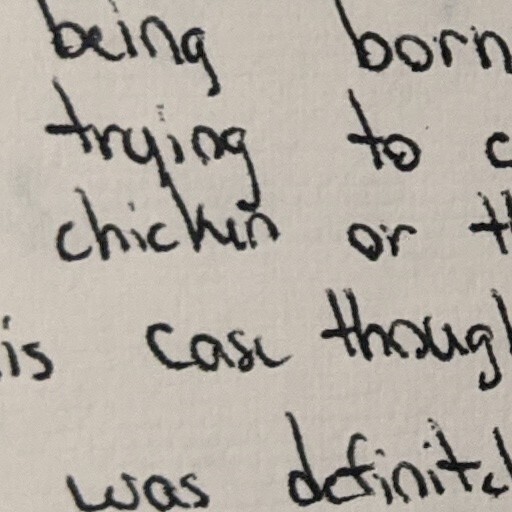 being born
trying to c
chicken or th
is case though
was definitel